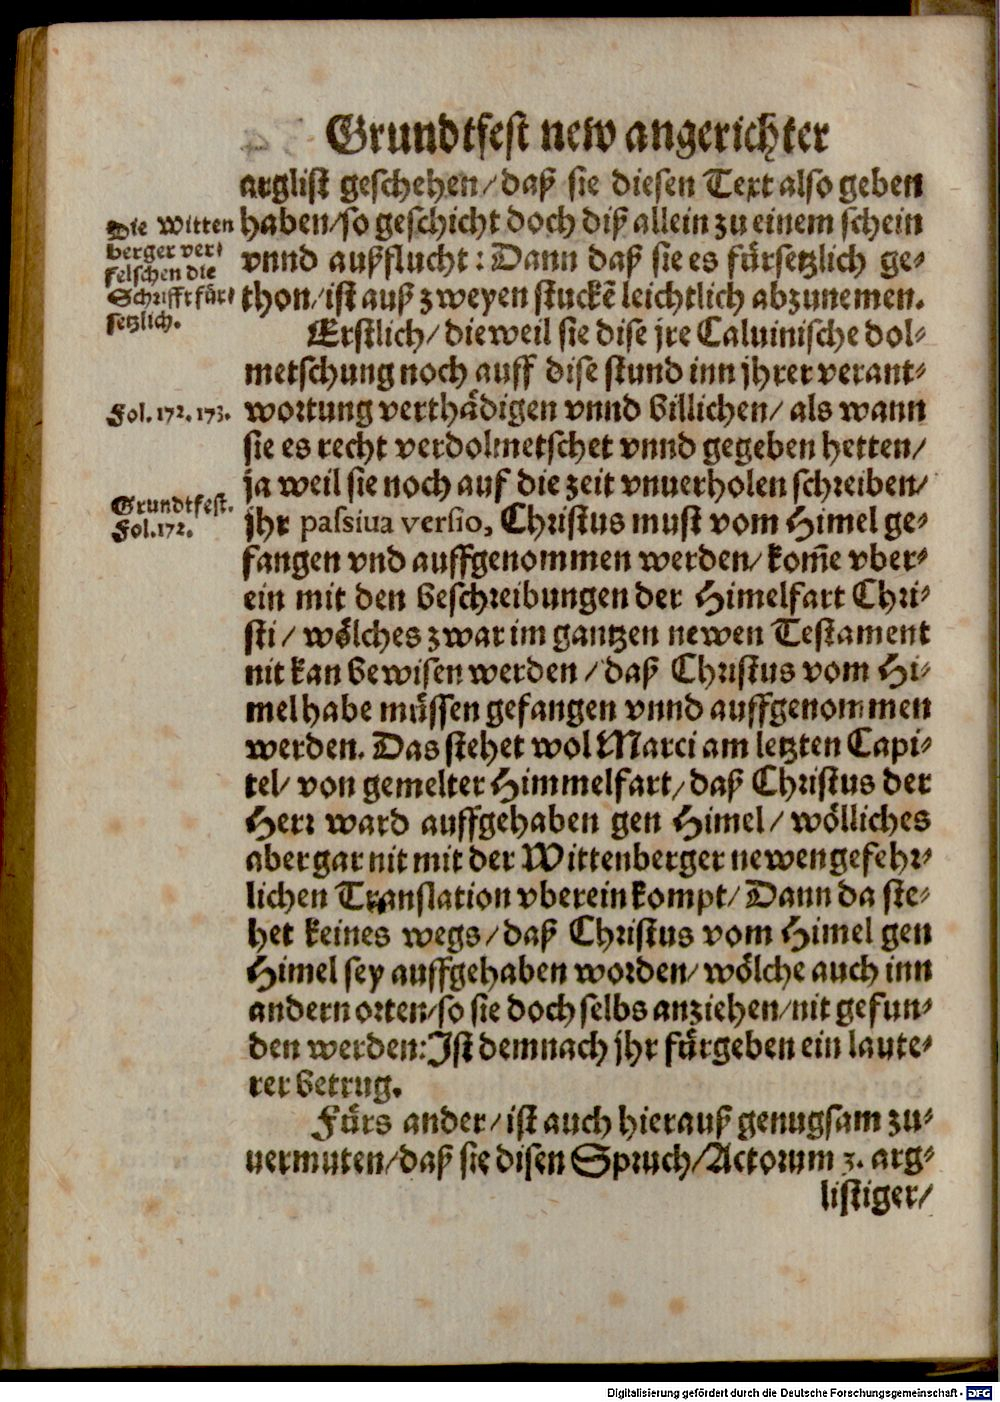 Grundtfest new angerichter
arglist geschehen/ daß sie diesen Text also geben
haben/ so geschicht doch diß allein zu einem schein
vnnd außflucht: Dann daß sie es fürsetzlich ge-
thon/ ist auß zweyen stuckē leichtlich abzunemen.
Die Witten
berger ver-
felschen die
Schrifft für-
setzlich.
Erstlich/ dieweil sie dise jre Caluinische dol-
metschung noch auff dise stund inn jhrer verant-
wortung verthädigen vnnd billichen/ als wann
Fol. 172. 173.
sie es recht verdolmetschet vnnd gegeben hetten/
ja weil sie noch auf die zeit vnuerholen schreiben/
jhr passiua versio, Christus must vom Himel ge-
Grundtfest.
Fol. 172.
fangen vnd auffgenommen werden/ kom̄e vber-
ein mit den beschreibungen der Himelfart Chri-
sti/ wölches zwar im gantzen newen Testament
nit kan bewisen werden/ daß Christus vom Hi-
mel habe müssen gefangen vnnd auffgenommen
werden. Das stehet wol Marci am letzten Capi-
tel/ von gemelter Himmelfart/ daß Christus der
Herr ward auffgehaben gen Himel/ wölliches
aber gar nit mit der Wittenberger newen gefehr-
lichen Translation vberein kompt/ Dann da ste-
het keines wegs/ daß Christus vom Himel gen
Himel sey auffgehaben worden/ wölche auch inn
andern orten/ so sie doch selbs anziehen/ nit gefun-
den werden: Ist demnach jhr fürgeben ein laute-
rer betrug.
Fürs ander/ ist auch hierauß genugsam zu-
uermuten/ daß sie disen Spruch/ Actorum 3. arg-
listiger/
Digitalisierung gefördert durch die Deutsche Forschungsgemeinschaft - DFG